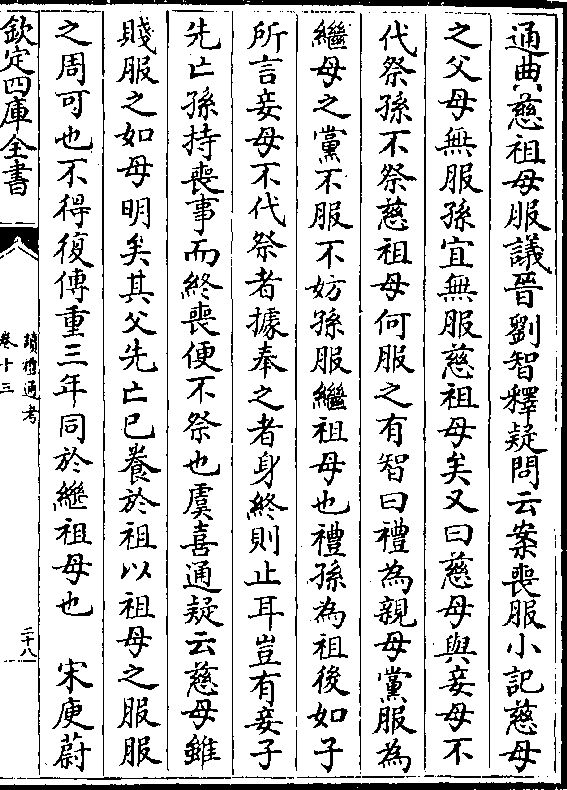 通典慈祖母服議晉劉智釋疑問云案喪服小記慈母
之父母無服孫宜無服慈祖母矣又曰慈母與妾母不
代祭孫不祭慈祖母何服之有智曰禮為親母黨服為
繼母之黨不服不妨孫服繼祖母也禮孫為祖後如子
所言妾母不代祭者據奉之者身終則止耳豈有妾子
先亡孫持喪事而終喪便不祭也虞喜通疑云慈母雖
賤服之如母明矣其父先亡已養於祖以祖母之服服
之周可也不得復傳重三年同於繼祖母也　宋庾蔚
欽定四庫全書
讀禮通考
卷十三
二十八